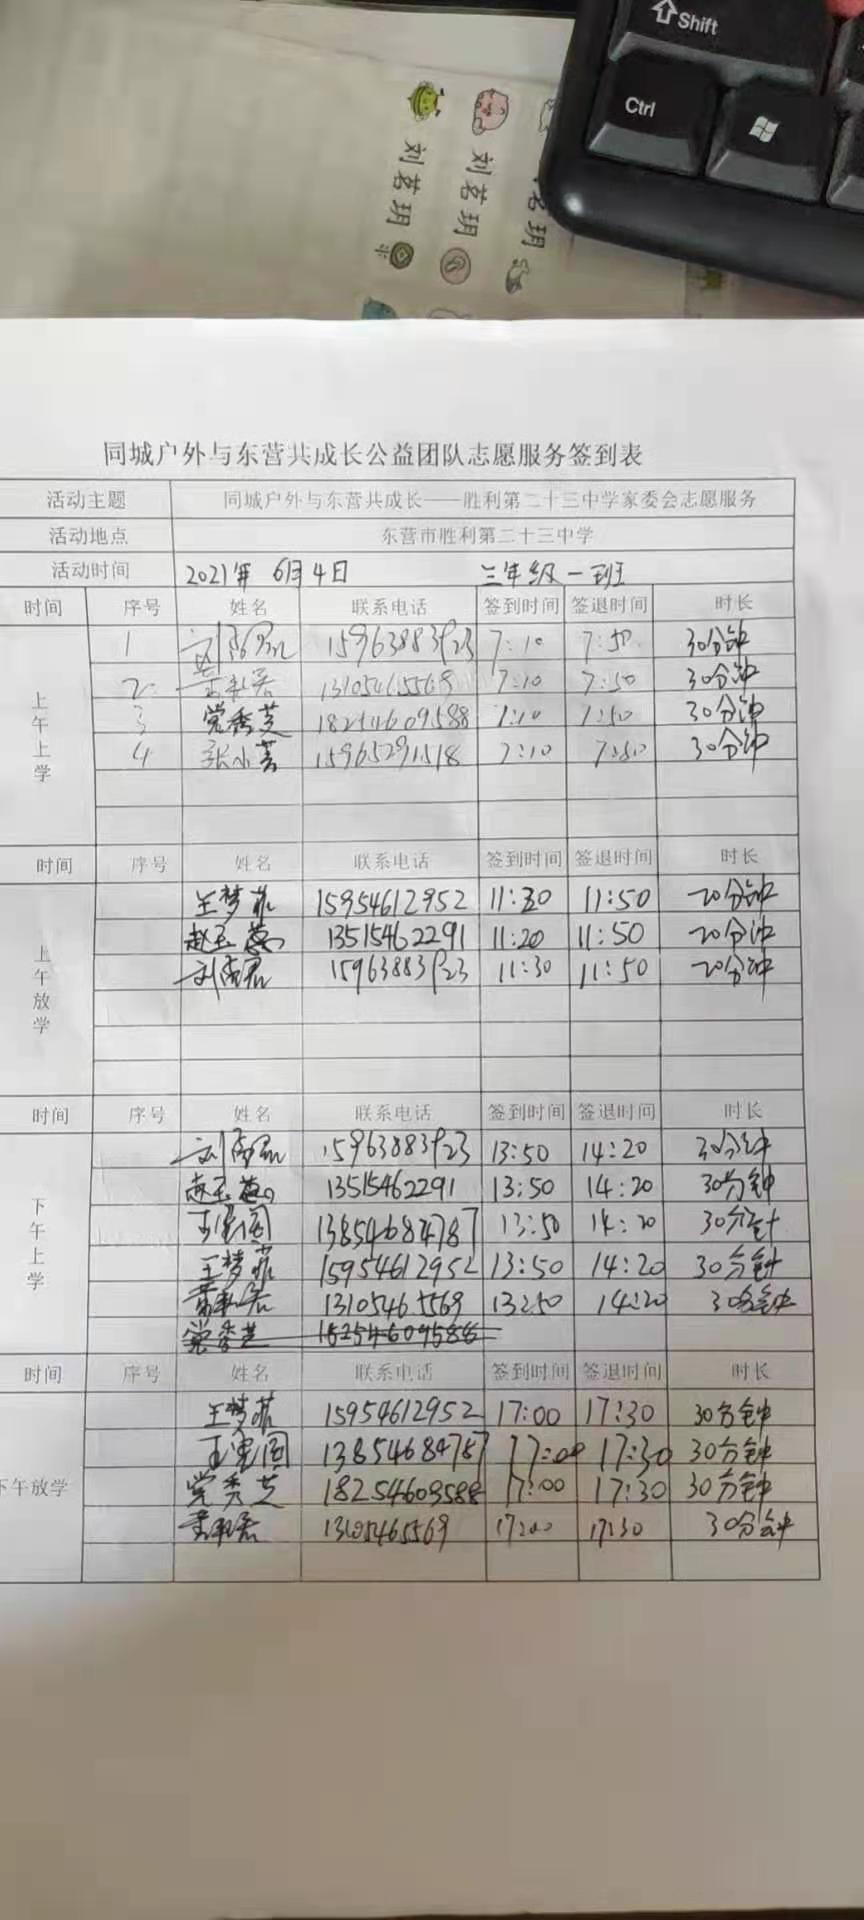 Shift
Ctrl
刘茗玥
刘茗玥
茗玥
同城户外与东营共成长公益团队志愿服务签到表
活动主题 同城户外与东营共成长——胜利第二十三中学家委会志愿服务
活动地点 东营市胜利第二十三中学
活动时间 2021年 6月4日 三年级一班
时间 序号 姓名 联系电话 签到时间 签退时间 时长
上午上学
1 15963883923 7:10 7:50 30分钟
2 13105465569 7:10 7:50 30分钟
3 党秀芝 18254609588 7:10 7:50 30分钟
4 张小芳 15965291518 7:10 7:50 30分钟
时间 序号 姓名 联系电话 签到时间 签退时间 时长
上午放学
王梦菲 15954612952 11:30 11:50 20分钟
赵玉 13515462291 11:20 11:50 20分钟
15963883923 11:30 11:50 20分钟
时间 序号 姓名 联系电话 签到时间 签退时间 时长
下午上学
15963883923 13:50 14:20 30分钟
赵玉 13515462291 13:50 14:20 30分钟
13854684787 13:50 14:20 30分钟
王梦菲 15954612952 13:50 14:20 30分钟
13105465569 13:50 14:20 30分钟
党秀芝
时间 序号 姓名 联系电话 签到时间 签退时间 时长
下午放学
王梦菲 15954612952 17:00 17:30 30分钟
13854684787 17:00 17:30 30分钟
党秀芝 18254609588 17:00 17:30 30分钟
13105465569 17:00 17:30 30分钟